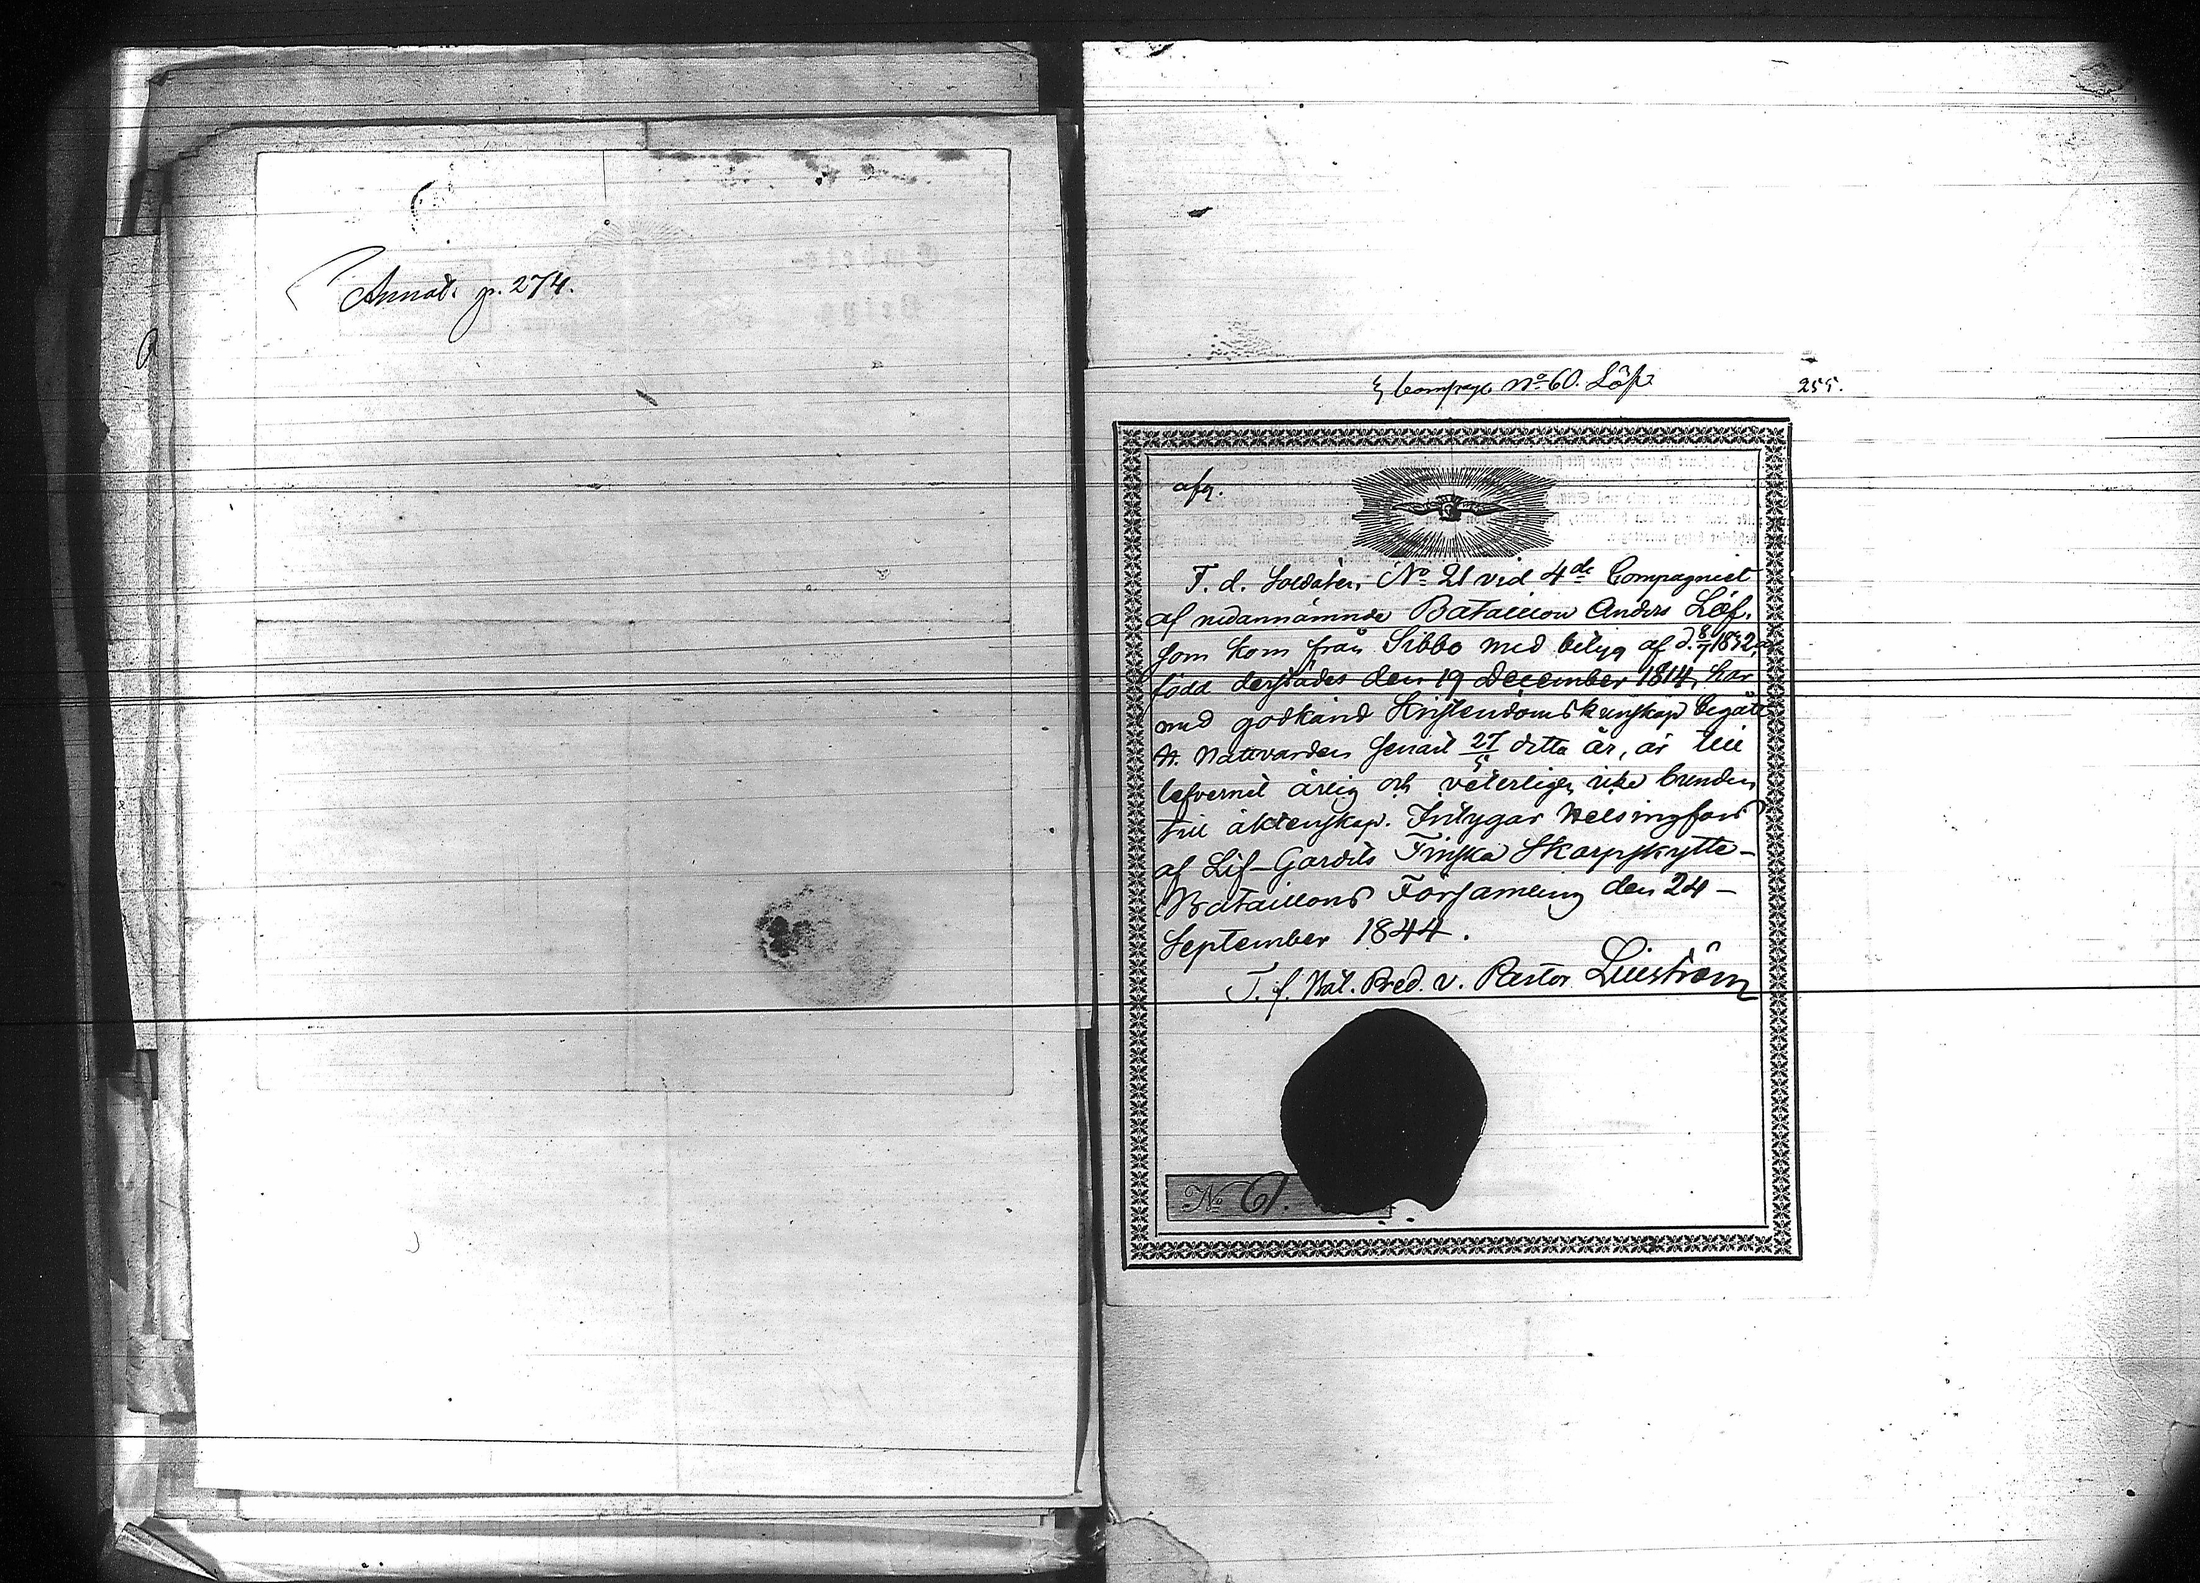 Annot. p. 274.
Compagn No 60. Löf.
255.
afg.
F. d. Soldaten No 21 vid 4de Compagniet
af nedannämnde Bataillon Anders Löf,
som kom från Sibbo med betyg af d. 8/7 1832, är
född derstädes den 19 December 1814, har
med godkänd Kristendomskunskap begått
H. Nattvarden senast 27/5 detta år, är till
lefvernet ärlig och veterligen icke bunden
till äktenskap. Intygar Helsingfors
af Lif-Gardets Finska Skarpskytte-
Bataillons Församling den 24
September 1844.
T. f. Bat. Pred. v. Pastor Liliström
No 61.